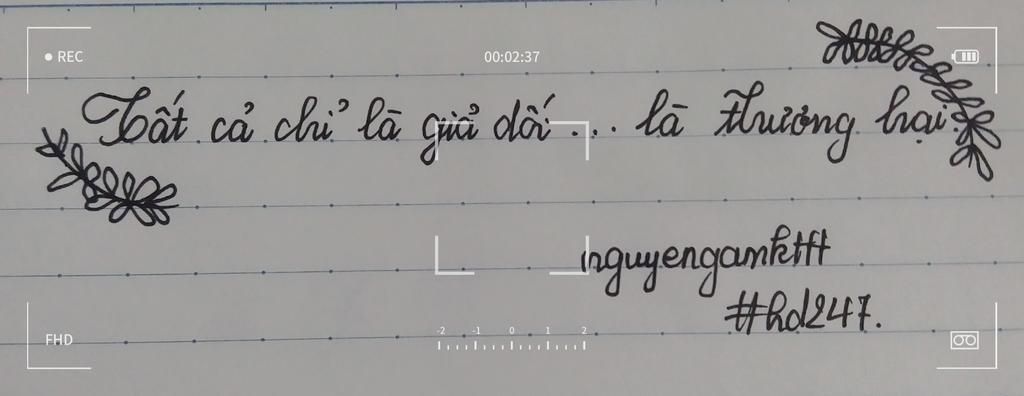 REC 00:02:37
Tất cả chỉ là giả dối ... là thương hại.
nguyengamkttt
#hd247.
FHD -2 -1 0 1 2